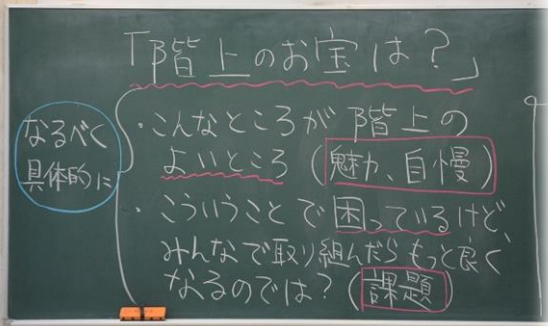 「階上のお宝は？」
なるべく
具体的に
・こんなところが 階上の
よいところ（魅力、自慢）
・こういうことで困っているけど
みんなで取り組んだらもっと良く
なるのでは？（課題）